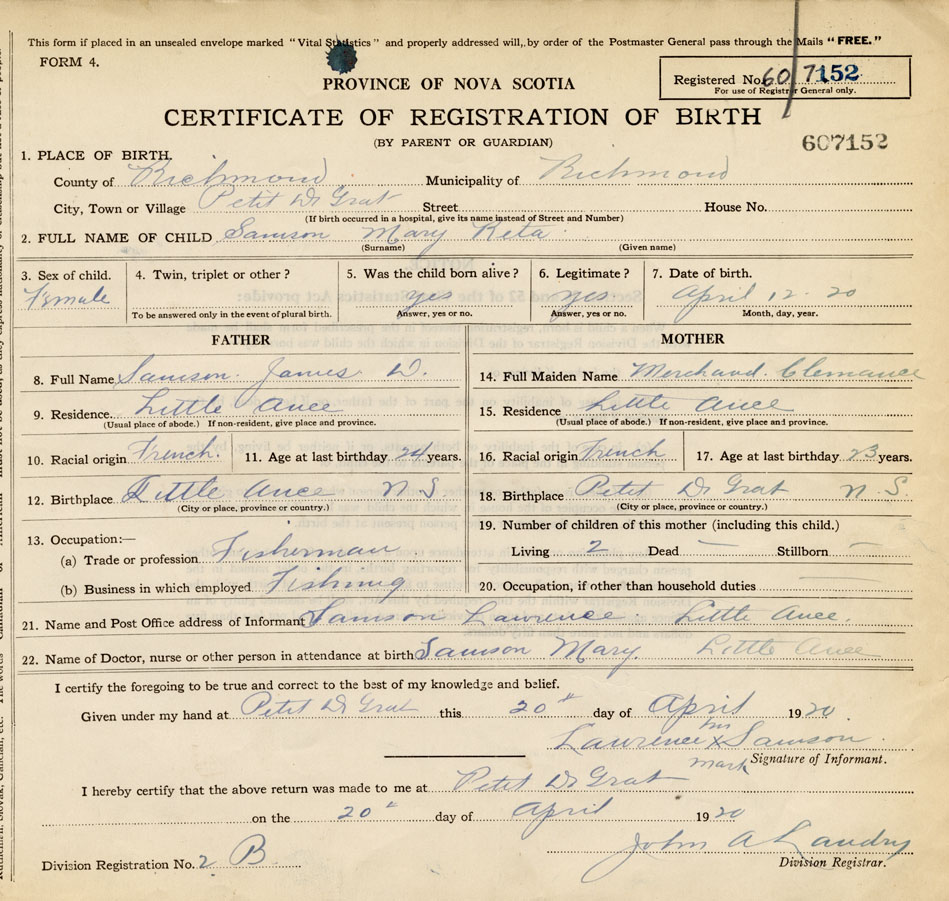 This form if placed in an unsealed envelope marked "Vital Statistics" and properly addressed will, by order of the Postmaster General pass through the Mails "FREE."
FORM 4.
Registered No. 607152
For use of Registrar General only.
PROVINCE OF NOVA SCOTIA
CERTIFICATE OF REGISTRATION OF BIRTH
(BY PARENT OR GUARDIAN)
607152
1. PLACE OF BIRTH.
County of Richmond Municipality of Richmond
City, Town or Village Petit D Grat Street House No.
(If birth occurred in a hospital, give its name instead of Street and Number)
2. FULL NAME OF CHILD Samson Mary Reta
(Surname) (Given name)
3. Sex of child. 4. Twin, triplet or other? 5. Was the child born alive? 6. Legitimate? 7. Date of birth.
Female yes yes April 12 20
To be answered only in the event of plural birth. Answer, yes or no. Answer, yes or no. Month, day, year.
FATHER
8. Full Name Samson James D.
9. Residence. Little Ance
(Usual place of abode.) If non-resident, give place and province.
10. Racial origin French. 11. Age at last birthday 24 years.
12. Birthplace Little Ance N S
(City or place, province or country.)
13. Occupation:—
(a) Trade or profession Fisherman
(b) Business in which employed Fishing
MOTHER
14. Full Maiden Name Merchand. Clemance
15. Residence Little Ance
(Usual place of abode.) If non-resident, give place and province.
16. Racial origin French 17. Age at last birthday 23 years.
18. Birthplace Petit D Grat N. S.
(City or place, province or country.)
19. Number of children of this mother (including this child.)
Living 2 Dead — Stillborn —
20. Occupation, if other than household duties
21. Name and Post Office address of Informant Samson Lawrence. Little Ance.
22. Name of Doctor, nurse or other person in attendance at birth Samson Mary. Little Ance
I certify the foregoing to be true and correct to the best of my knowledge and belief.
Given under my hand at Petit D Grat this 20th day of April 1920
Lawrence his X Samson
mark
Signature of Informant.
I hereby certify that the above return was made to me at Petit D Grat
on the 20th day of April 1920
John A Landry
Division Registration No. 2 B
Division Registrar.